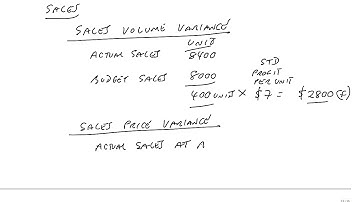 SALES
SALES VOLUME VARIANCE
UNIT
ACTUAL SALES 8400
STD
PROFIT
PER UNIT
BUDGET SALES 8000
400 UNIT × $7 = $2800 (F)
SALES PRICE VARIANCE
ACTUAL SALES AT A